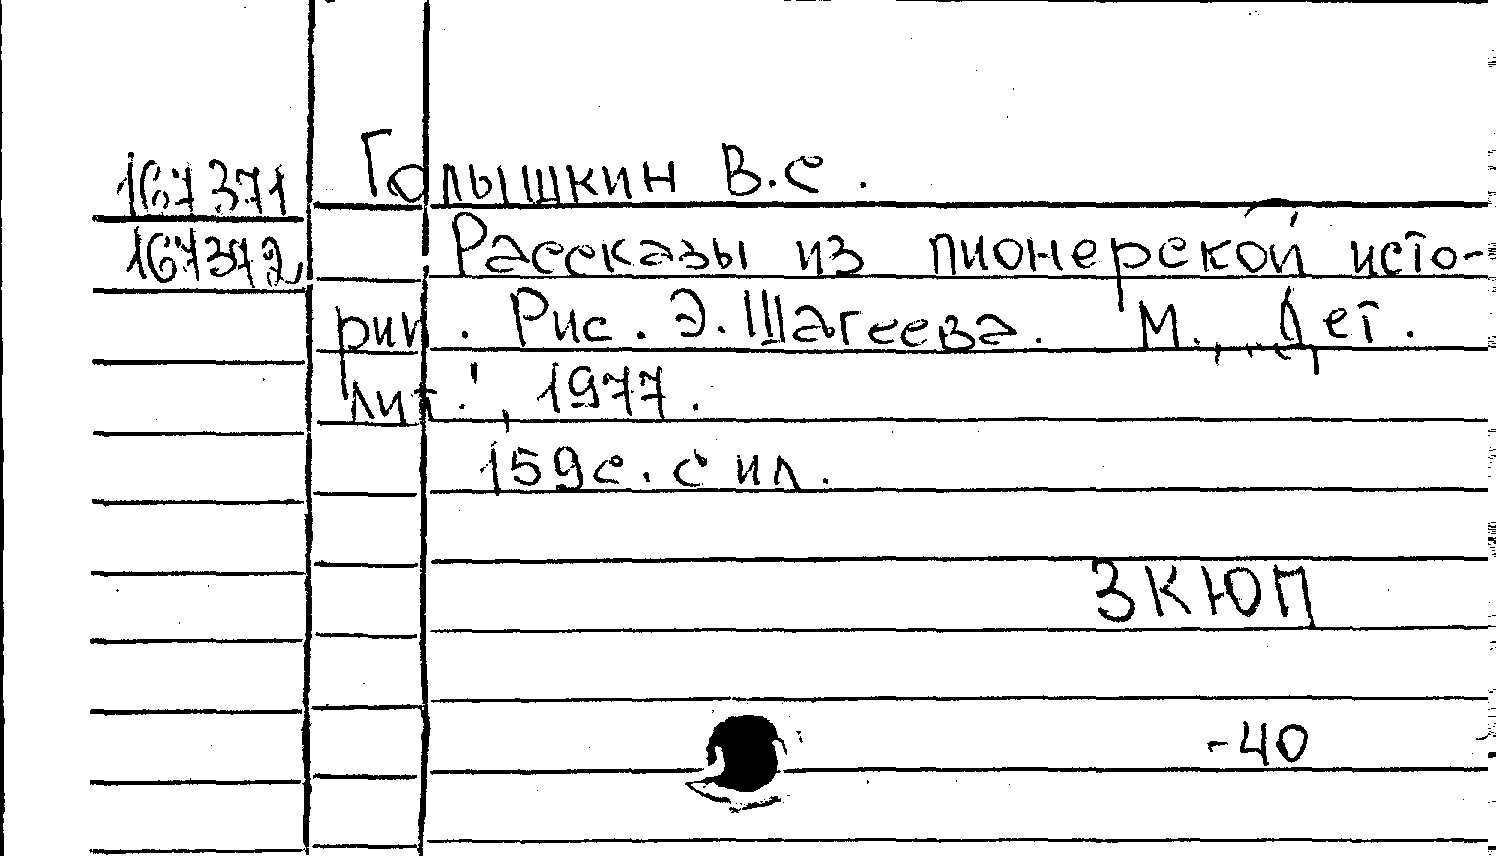 167371 Голышкин В.С.
167372 Рассказы из пионерской исто-
рии. Рис. Э. Шагеева. М., "Дет.
лит.", 1977.
159с. с ил.
ЗКЮП
-40